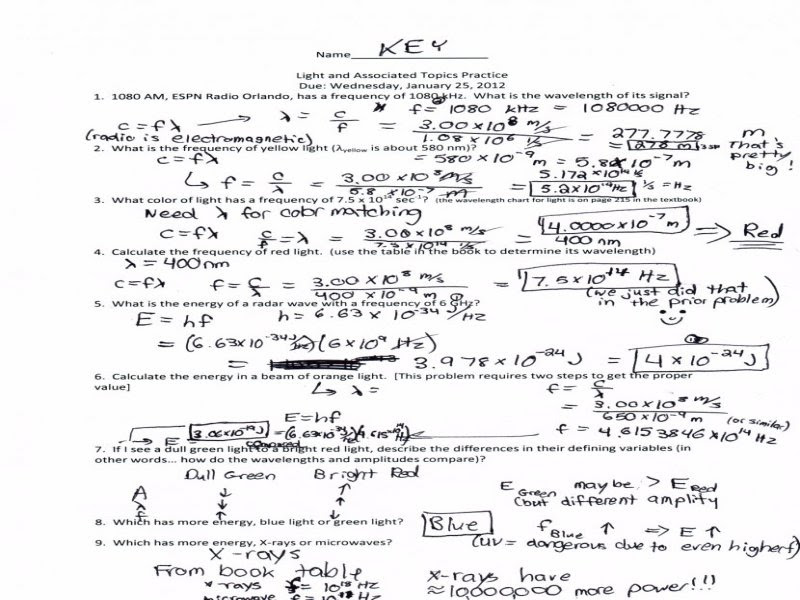 Name KEY
Light and Associated Topics Practice
Due: Wednesday, January 25, 2012
1. 1080 AM, ESPN Radio Orlando, has a frequency of 1080 kHz. What is the wavelength of its signal?
f = 1080 kHz = 1080000 Hz
c = fλ → λ = c/f = 3.00 × 10⁸ m/s / 1.08 × 10⁶ 1/s = 277.7778 m
(radio is electromagnetic) = 278 m That's pretty big!
2. What is the frequency of yellow light (λyellow is about 580 nm)?
c = fλ = 580 × 10⁻⁹ m = 5.8 × 10⁻⁷ m
f = c/λ = 3.00 × 10⁸ m/s / 5.8 × 10⁻⁷ m = 5.172 × 10¹⁴ 1/s
5.2 × 10¹⁴ Hz 1/s = Hz
3. What color of light has a frequency of 7.5 x 10¹⁴ sec⁻¹? (the wavelength chart for light is on page 215 in the textbook)
Need λ for color matching
c = fλ c/f = λ = 3.00 × 10⁸ m/s / 7.5 × 10¹⁴ 1/s = 4.0000 × 10⁻⁷ m ⇒ Red
400 nm
4. Calculate the frequency of red light. (use the table in the book to determine its wavelength)
λ = 400 nm
c = fλ f = c/λ = 3.00 × 10⁸ m/s / 400 × 10⁻⁹ m = 7.5 × 10¹⁴ Hz
(we just did that in the prior problem)
5. What is the energy of a radar wave with a frequency of 6 GHz?
E = hf h = 6.63 × 10⁻³⁴ J/Hz
= (6.63 × 10⁻³⁴ J/Hz)(6 × 10⁹ Hz)
= 3.978 × 10⁻²⁴ J = 4 × 10⁻²⁴ J
6. Calculate the energy in a beam of orange light. [This problem requires two steps to get the proper
value]
λ = f = c/λ
= 3.00 × 10⁸ m/s / 650 × 10⁻⁹ m (or similar)
E = hf
f = 4.6153846 × 10¹⁴ Hz
E =
7. If I see a dull green light to a bright red light, describe the differences in their defining variables (in
other words... how do the wavelengths and amplitudes compare)?
Dull Green Bright Red
A ↓ ↑
E Green may be > E Red
(but different amplity
8. Which has more energy, blue light or green light? Blue f Blue ↑ ⇒ E ↑
(UV = dangerous due to even higher f)
9. Which has more energy, X-rays or microwaves?
X-rays
From book table
X-rays have
≈ 10,000,000 more power!!!
x rays f = 10¹⁸ Hz
microwave